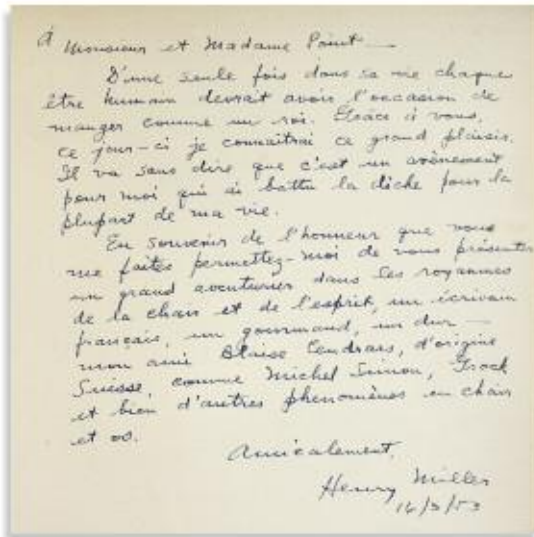 à Monsieur et Madame Point —
D'une seule fois dans sa vie chaque
être humain devrait avoir l'occasion de
manger comme un roi. Grâce à vous,
ce jour-ci je connaîtrai ce grand plaisir.
Il va sans dire que c'est un avènement
pour moi qui ai battu la dèche pour la
plupart de ma vie.
En souvenir de l'honneur que vous
me faites permettez-moi de vous présenter
un grand aventurier dans les royaumes
de la chair et de l'esprit, un écrivain
français, un gourmand, un dur —
mon ami Blaise Cendrars, d'origine
Suisse, comme Michel Simon, Grock
et bien d'autres phenomènes en chair
et os.
Amicalement,
Henry Miller
/53